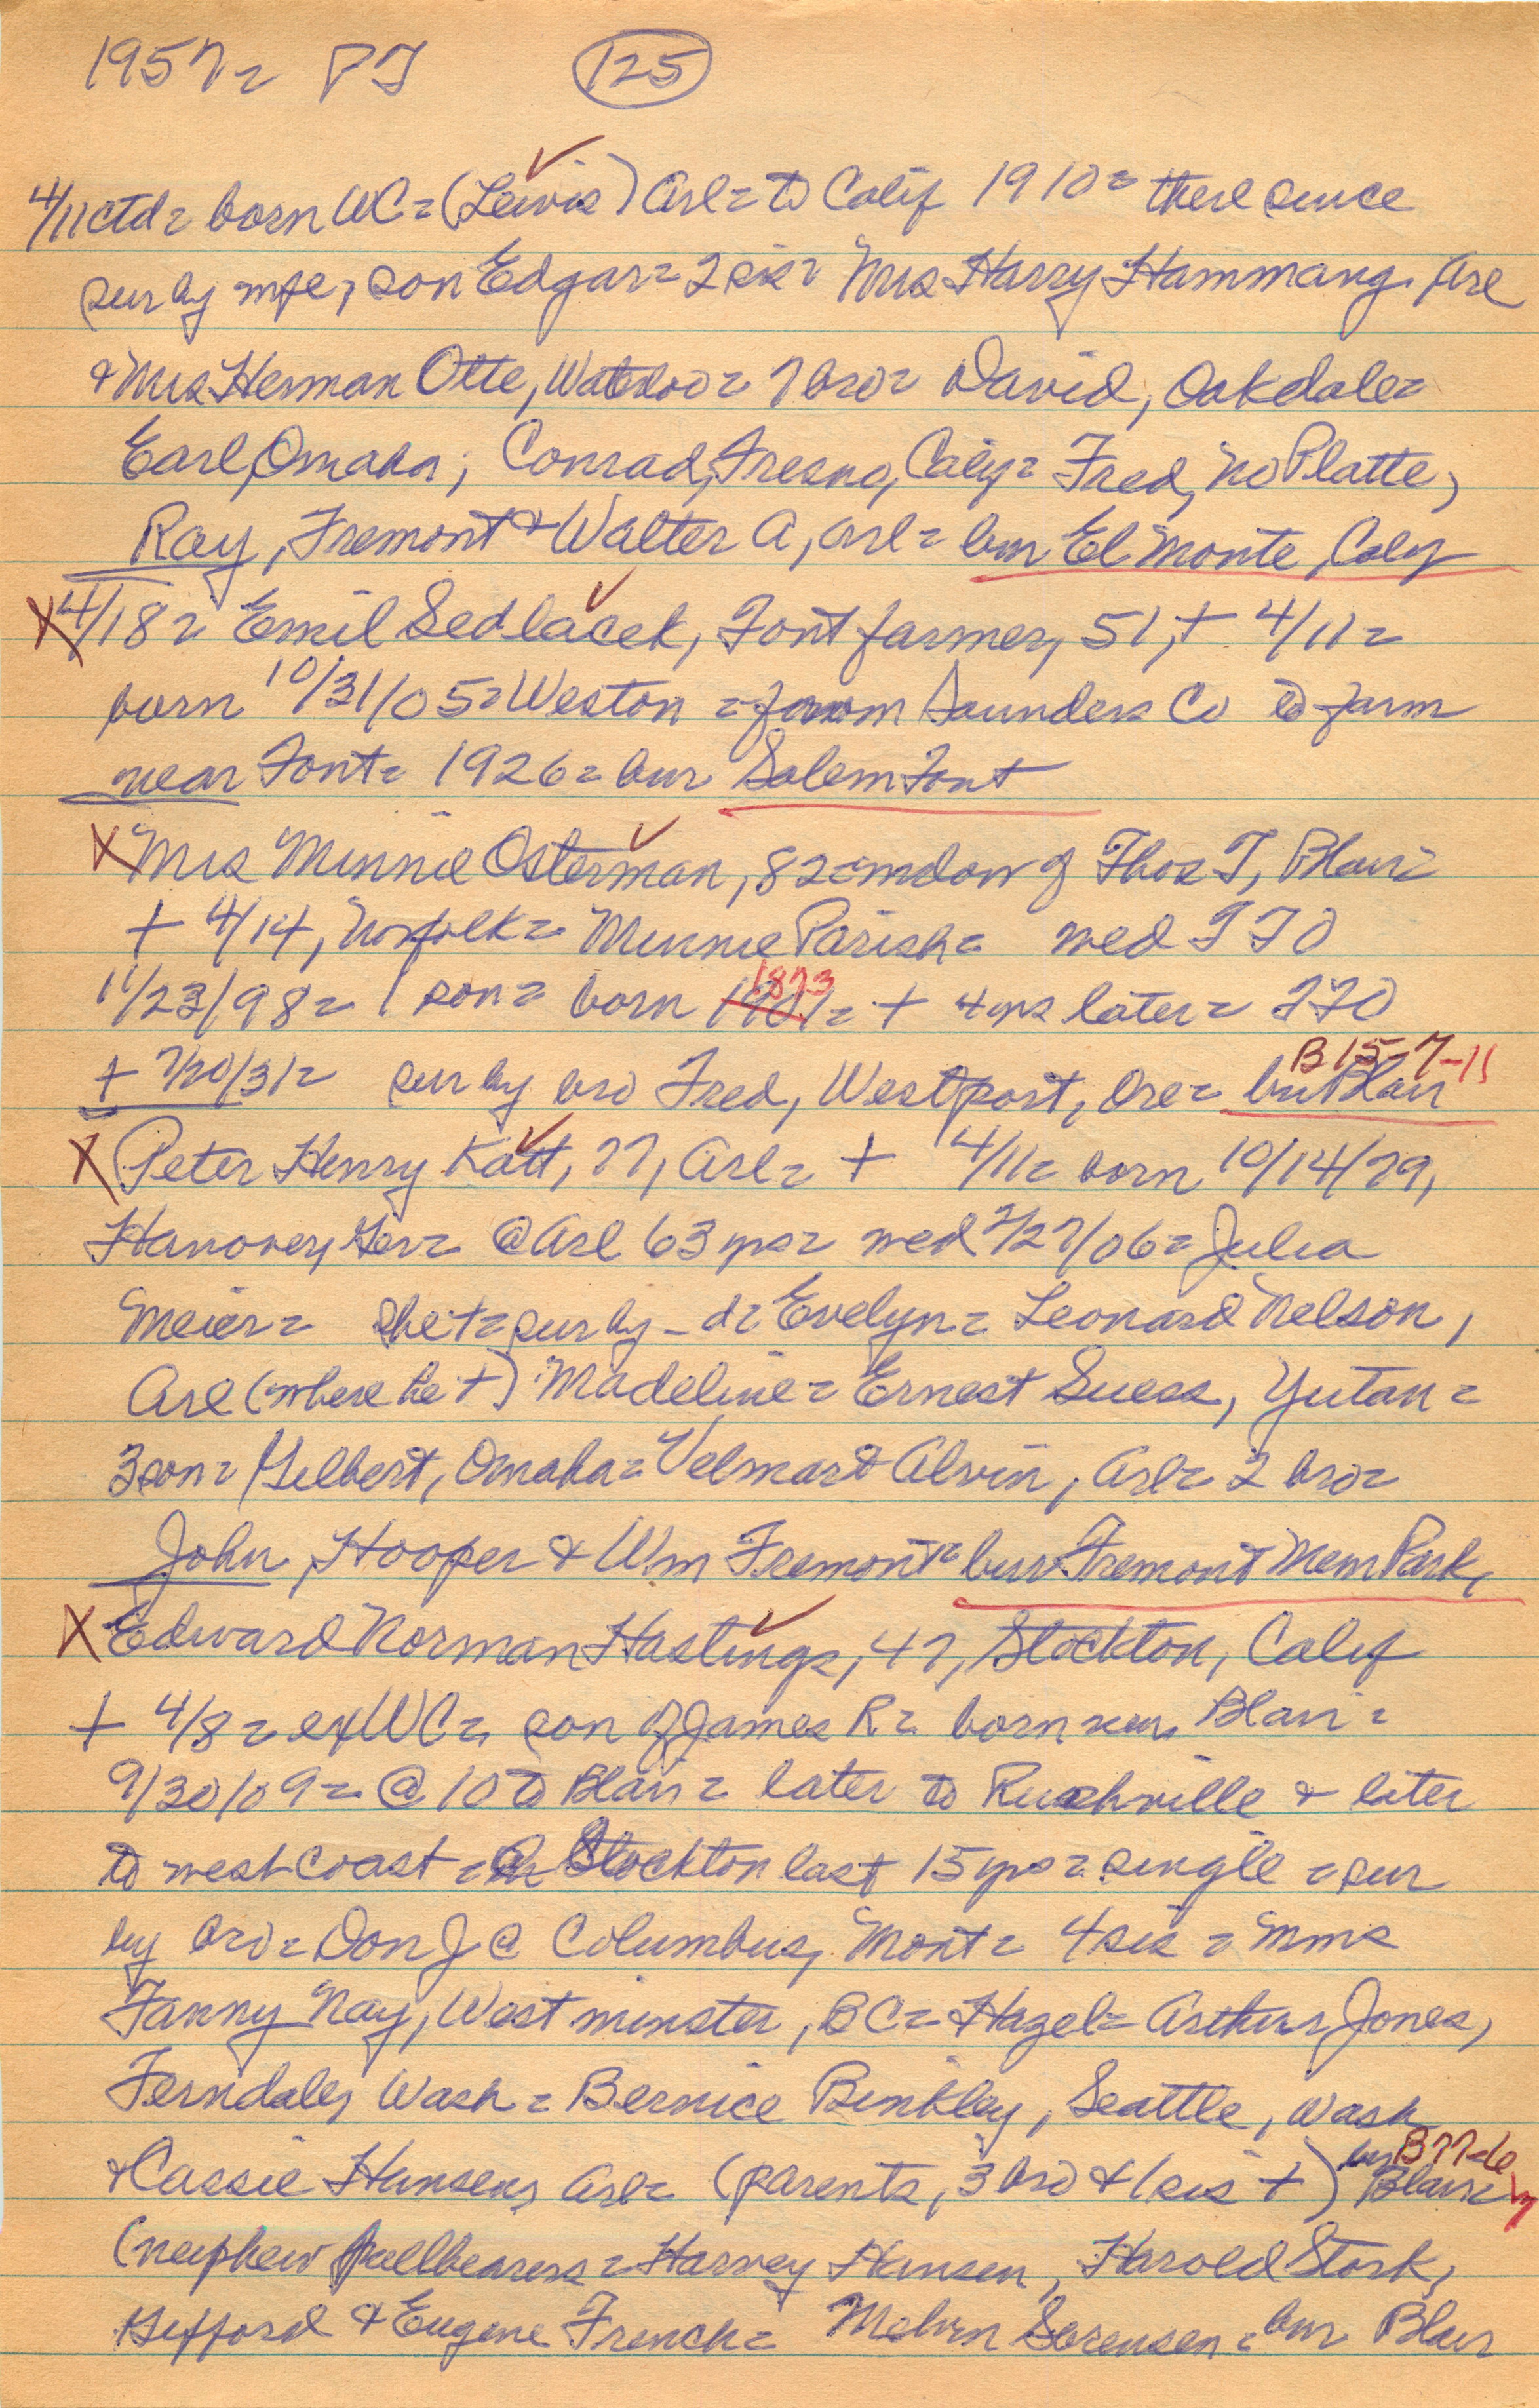 1957= PT (125)
4/11 ctd= born WC= (Lewis) Arl= to Calif 1910= there since
sur by wfe, son Edgar= 2 sis= Mrs Harry Hammang, Arl
& Mrs Herman Otte, Waterloo= 7 bro= David, Oakdale=
Earl, Omaha; Conrad, Fresno, Calif= Fred, No Platte,
Ray, Fremont & Walter A, Arl= bur El Monte, Calif
X 4/18= Emil Sedlacek, Font farmer, 51, + 4/11=
born 10/31/05= Weston = from Saunders Co to farm
near Font= 1926= bur Salem Font
X Mrs Minnie Osterman, 82= widow of Thos T, Blair=
+ 4/14, Norfolk= Minnie Parish= wed TTO
11/23/98= 1 son= born 1873 = + 4 yrs later= TTO
+ 7/20/31= sur by bro Fred, Westport, Ore= bur Blair B 15-7-11
X Peter Henry Katt, 77, Arl= + 4/11= born 10/14/79,
Hanover, Ger= @ Arl 63 yrs= wed 2/27/06= Julia
Meier= she += sur by - d= Evelyn= Leonard Nelson,
Arl (where he +) Madeline= Ernest Suess, Yutan=
3 son= Gilbert, Omaha= Velmar & Alvin, Arl= 2 bro=
John, Hooper & Wm Fremont= bur Fremont Mem Park,
X Edward Norman Hastings, 47, Stockton, Calif
+ 4/8= ex WC= son of James R= born near Blair=
9/30/09= @ 10 to Blair= later to Rushville & later
to west coast = @ Stockton last 15 yrs= single = sur
by bro= Don J @ Columbus, Mont= 4 sis = Mmes
Fanny Nay, Westminster, BC= Hazel= Arthur Jones,
Ferndale, Wash= Bernice Binkley, Seattle, Wash
& Cassie Hansen, Arl= (parents, 3 bro & 1 sis +) bur Blair=
(nephew pallbearers= Harvey Hansen, Harold Stork,
Gifford & Eugene French= Melvin Sorensen= bur Blair